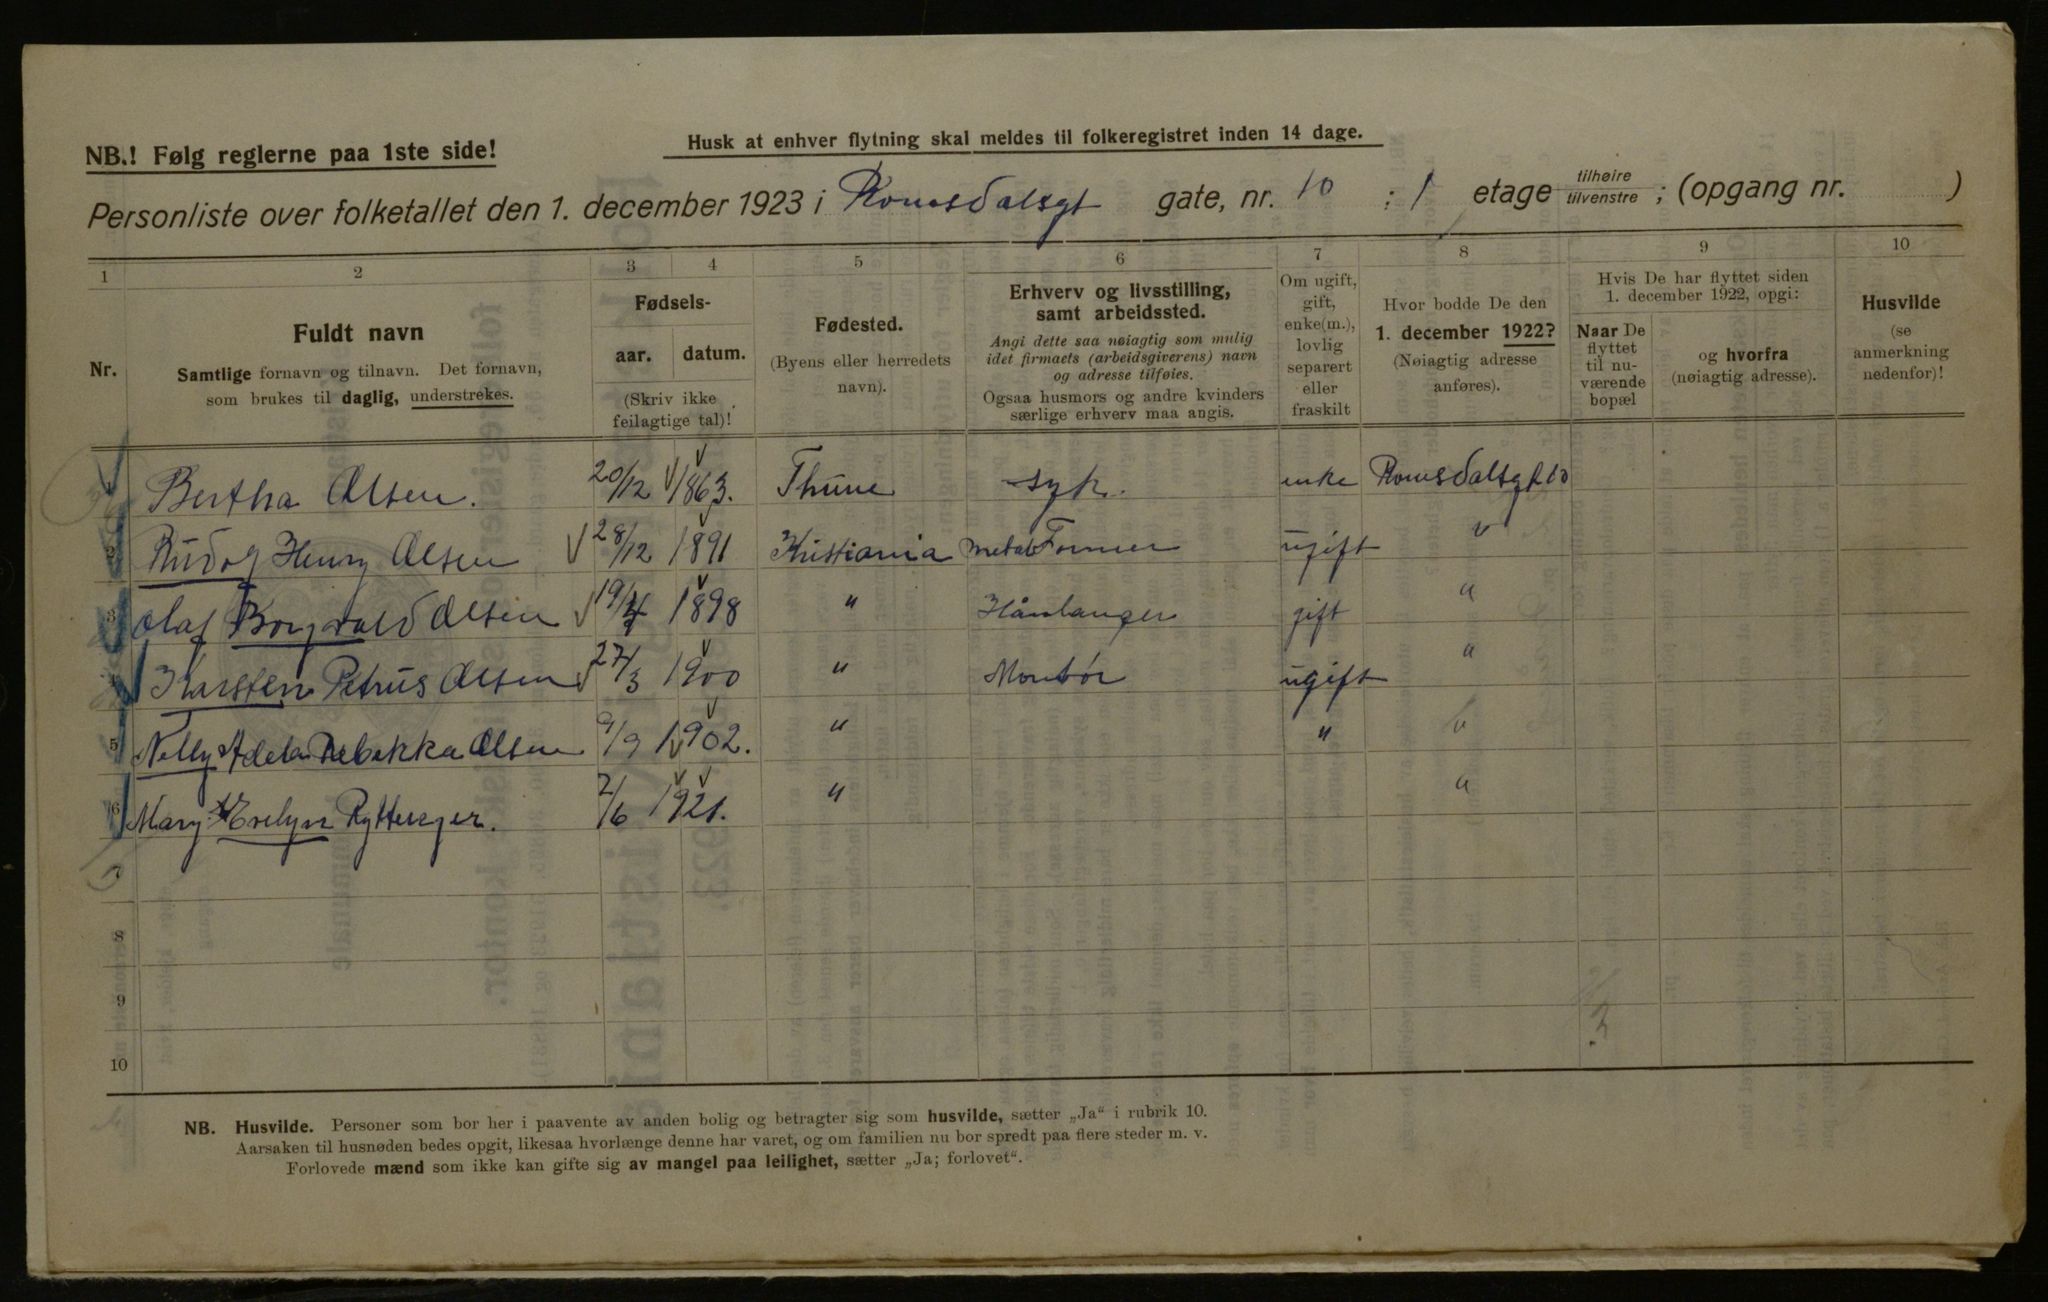 NB.! Følg reglerne paa 1ste side!
Husk at enhver flytning skal meldes til folkeregistret inden 14 dage.
Personliste over folketallet den 1. december 1923 i Romsdalsgt gate, nr. 10 : 1 etage tilhøire tilvenstre ; (opgang nr. )
1 2 3 4 5 6 7 8 9 10
Nr.
Fuldt navn
Samtlige fornavn og tilnavn. Det fornavn,
som brukes til daglig, understrekes.
Fødsels-
aar. datum.
(Skriv ikke
feilagtige tal)!
Fødested.
(Byens eller herredets
navn).
Erhverv og livsstilling,
samt arbeidssted.
Angi dette saa nøiagtig som mulig
idet firmaets (arbeidsgiverens) navn
og adresse tilføies.
Ogsaa husmors og andre kvinders
særlige erhverv maa angis.
Om ugift,
gift,
enke(m.),
lovlig
separert
eller
fraskilt
Hvor bodde De den
1. december 1922?
(Nøiagtig adresse
anføres).
Hvis De har flyttet siden
1. december 1922, opgi:
Naar De
flyttet
til nu-
værende
bopæl
og hvorfra
(nøiagtig adresse).
Husvilde
(se
anmerkning
nedenfor)!
Bertha Olsen. 20/12 1863. Thune syk. enke Romsdalsgt 10
2 Rudolf Henry Olsen 28/12 1891 Kristiania metalFormer ugift "
3 Olaf Borgvald Olsen 19/4 1898 " Hånlanger gift "
Karsten Petrus Olsen 27/3 1900 " Montør ugift "
5 Nelly Adela Rebekka Olsen 9/9 1902. " " "
6 Mary Evelyn Rytterger. 2/6 1921. " "
7
8
9
10
NB. Husvilde. Personer som bor her i paavente av anden bolig og betragter sig som husvilde, sætter „Ja“ i rubrik 10.
Aarsaken til husnøden bedes opgit, likesaa hvorlænge denne har varet, og om familien nu bor spredt paa flere steder m. v.
Forlovede mænd som ikke kan gifte sig av mangel paa leilighet, sætter „Ja; forlovet“.